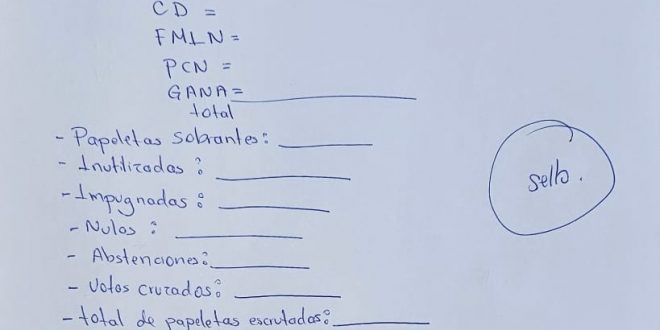 CD =
FMLN =
PCN =
GANA = ___
total
- Papeletas sobrantes: ___
- Inutilizadas : ___
- Impugnadas : ___
- Nulos : ___
- Abstenciones: ___
- Votos cruzados: ___
- total de papeletas escrutadas: ___
sello.